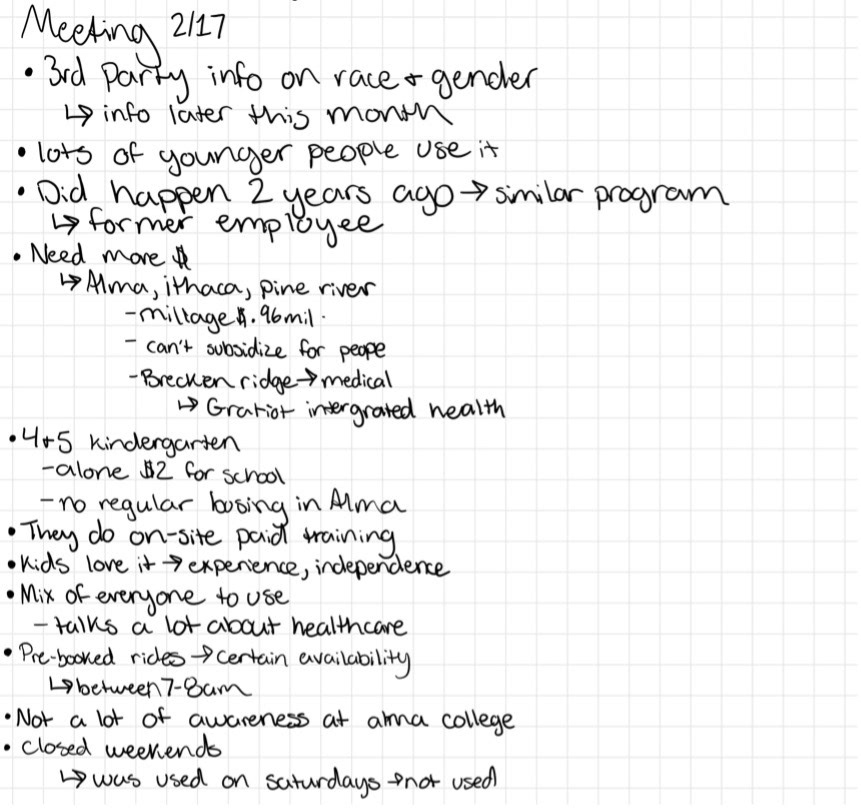 Meeting 2/17
• 3rd party info on race + gender
↳ info later this month
• lots of younger people use it
• Did happen 2 years ago → similar program
↳ former employee
• Need more $
↳ Alma, ithaca, pine river
- miltage $.96mil.
- can't subsidize for peope
- Breckenridge → medical
↳ Gratiot intergrated health
• 4+5 kindergarten
- alone $2 for school
- no regular busing in Alma
• They do on-site paid training
• Kids love it → experience, independence
• Mix of everyone to use
- talks a lot about healthcare
• Pre-booked rides → certain availability
↳ between 7-8am
• Not a lot of awareness at alma college
• closed weekends
↳ was used on saturdays → not used